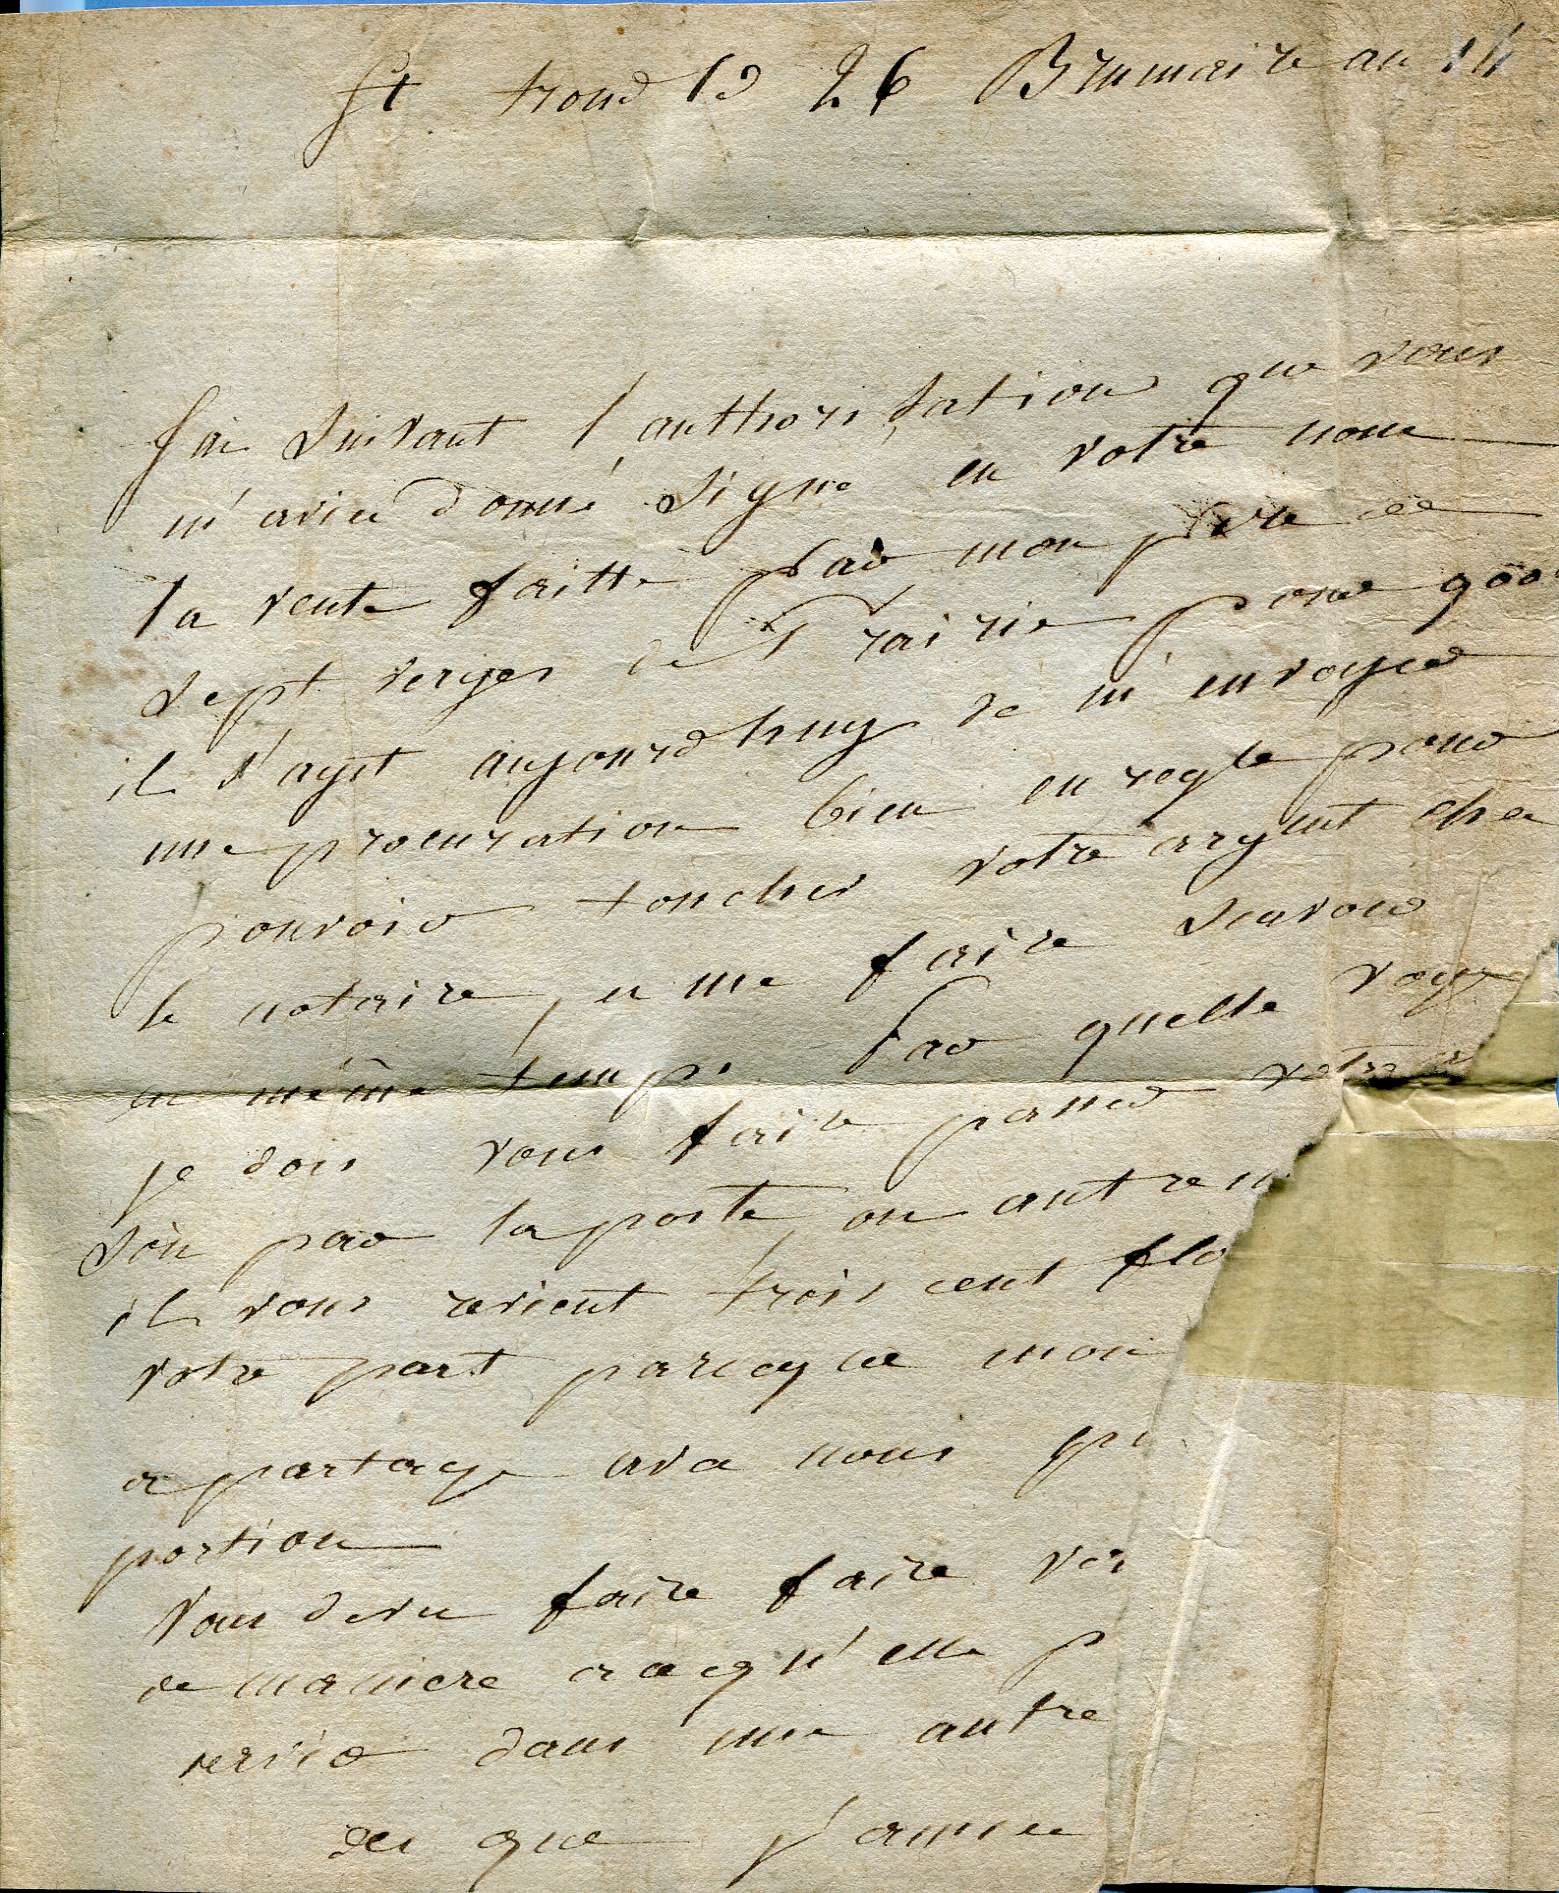 St trond le 26 Brumaire an 14
J'ai suivant l'authorisation que vous
m'aviez donné signe en votre nom
la vente faitte par mon père de
sept verges de Prairie pour 900
il s'agit aujourdhuy de m'envoyer
une procuration bien en regle pour
pouvoir toucher votre argent chez
le notaire, et me faire scavoir
en même temps par quelle voye
je dois vous faire passer votre
soit par la poste, ou autrem
il vous revient trois cent flo
votre part parceque mon
a partagé avec nous
portion
Vous devez faire faire
de maniere a ce qu'elle p
servir dans une autre
des que j'aurai